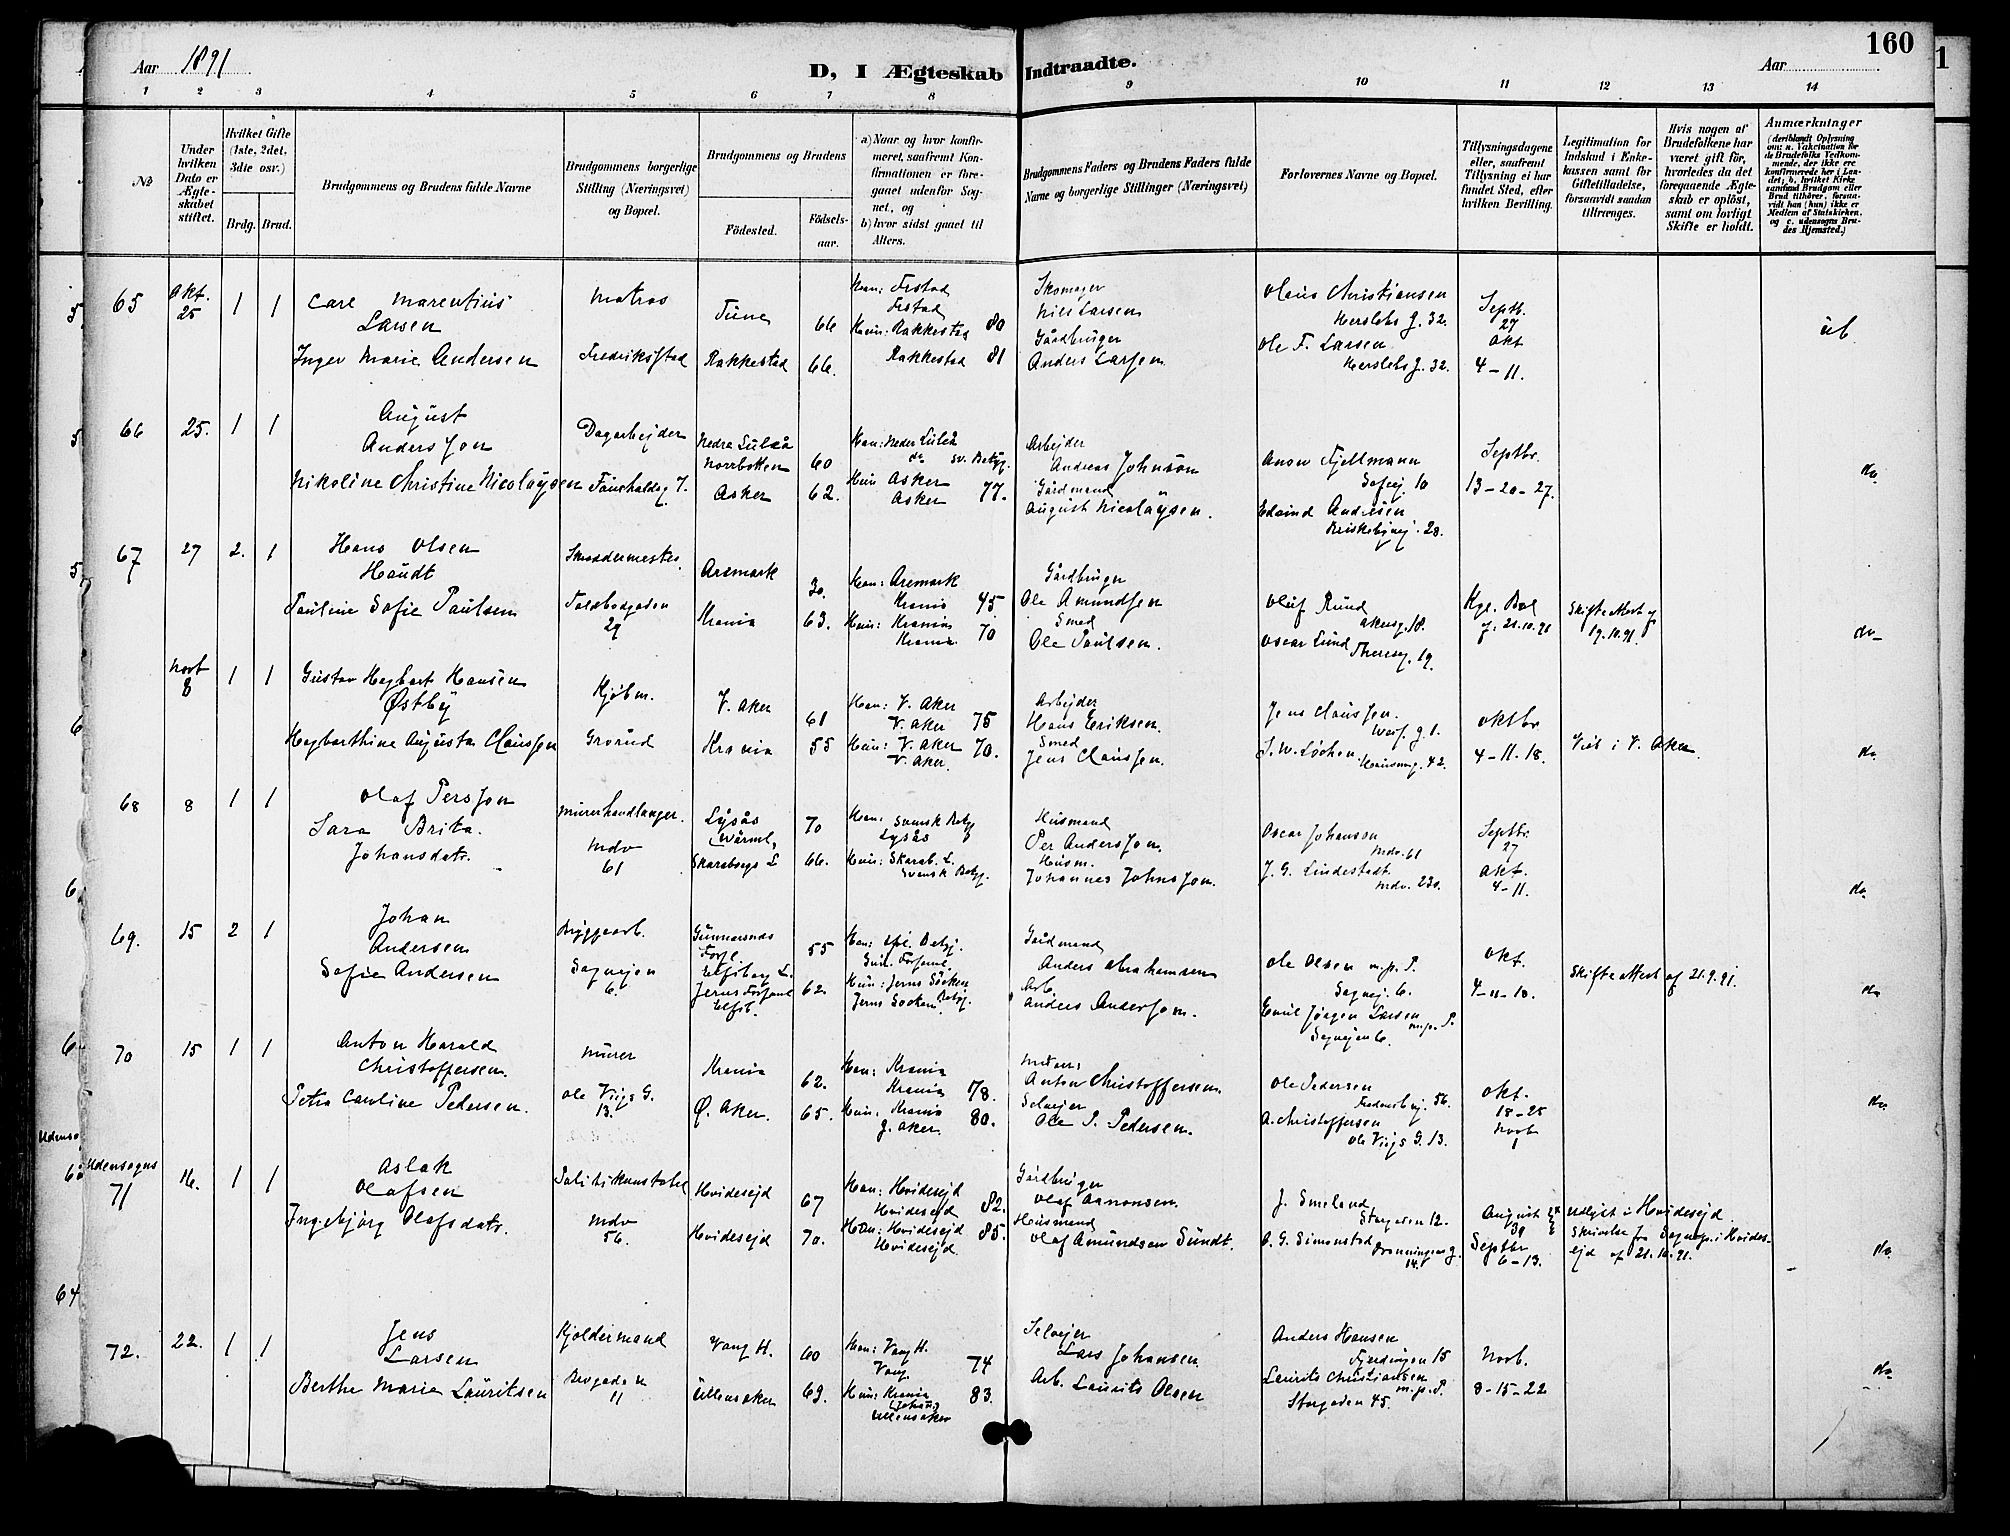 160
Aar 1891
D, I Ægteskab Indtraadte.
Aar
1 2 3 4 5 6 7 8 9 10 11 12 13 14
No
Under hvilken Dato er Ægteskabet stiftet.
Hvilket Gifte (1ste, 2det, 3die osv.)
Brdg. Brud.
Brudgommens og Brudens fulde Navne
Brudgommens borgerlige Stilling (Næringsvei) og Bopæl.
Brudgommens og Brudens
Fødested.
Fødselsaar.
a) Naar og hvor konfirmeret, saafremt Konfirmationen er foregaaet udenfor Sognet, og
b) hvor sidst gaaet til Alters.
Brudgommens Faders og Brudens Faders fulde Navne og borgerlige Stillinger (Næringsvei)
Forlovernes Navne og Bopæl.
Tillysningsdagene eller, saafremt Tillysning ei har fundet Sted, efter hvilken Bevilling.
Legitimation for Indskud i Enkekassen samt for Giftetilladelse, forsaavidt saadan tiltrænges.
Hvis nogen af Brudefolkene har været gift før, hvorledes da det foregaaende Ægteskab er opløst, samt om lovligt Skifte er holdt.
Anmærkninger
(deriblandt Oplysning om: a. Vakcination for de Brudefolks Vedkommende, der ikke ere konfirmerede her i Landet, b. hvilket Kirkesamfund Brudgom eller Brud tilhører, forsaavidt han (hun) ikke er Medlem af Statskirken, og c. udensogns Brudes Hjemsted.)
65 Okt. 25 1 1
Carl Marentius
Larsen
Inger Marie Andersen
Matros
Fredrikstad
Tune 66
Rakkestad 66.
Han:
Hun: Rakkestad 80
Rakkestad 81
Skomager
Nils Larsen
Gårdbruger
Anders Larsen
Olaus Christiansen
Herslebs g. 32.
Ole F. Larsen
Herslebs g. 32.
Septb.
27
Okt
4-11.
66 25. 1 1
August
Andersson
Nikoline Christine Nicolaysen
Dagarbejder
Nedre Luleå
Norrbotten 60
Asker 62.
Han: Neder Luleå
do sv. Betyg.
Hun Asker
Asker 77.
Arbejder
Andreas Johnson
Gårdmand
August Nicolaysen.
Anon Fjellmann
10
Edvind Andresen
Briskebyvej 28.
Septbr.
13-20-27.
do.
67 27 2. 1
Hans Olsen
Haudt
Pauline Sofie Paulsen
Skræddermester.
Toldbodgaden
29
Aremark 30.
Krania 63.
Han: Aremark
Krania 45
Hun: Krania
Krania. 70
Gårdbruger
Ole Amundsen
Smed
Ole Paulsen.
Oluf Rund
Akersg. 18.
Oscar Lund
Theresg. 19.
Kgl. Bev.
af 21.10.91
Skifteattest af
19.10.91.
do
Novb
8 1 1
Gustav Hagbart Hansen
Østby
Hagbarthine Augusta Claussen
Kjøbm.
Grorud
V. Aker 61
Krania 55
Han: V. Aker
V. Aker 75
Hun: V. Aker 70.
V. Aker.
Arbejder
Hans Eriksen.
Smed
Jens Claussen.
Jens Claussen.
g. 1.
S. W. Løchen
Hausmg. 42.
Oktbr
4-11-18.
Viet i V. Aker
do.
68 8 1 1
Olaf Persson
Sara Brita
Johansdatr.
Murerhandlanger.
Mdv
61
Lysås
Värml. 70
Skaraborgs L 66.
Han: Svensk Betyg
Lysås
Hun: Skarab. L.
Svensk Betyg.
Husmand
Per Andersson.
Husm.
Johannes Johnsson.
Oscar Johanson
Mdv. 61
J. G. Lindestadt
Mdv. 23
Septbr
27
Okt.
4-11.
do.
69. 15 2 1
Johan
Andersen
Sofie Andersen
Bryggearb.
Sagvejen
6.
Elfsborg L. 55
Elfsb. 62.
Gårdmand
Anders Abrahamsen
Arb.
Anders Andersson.
Ole Olsen m.p. P.
Sagvej. 6.
Emil Jørgen Larsen
Sagvejen 6. m.p. P.
Okt.
4-11-18.
Skifteattest af 21.9.91.
do
70 15 1 1
Anton Harald
Christoffersen.
Petra Caroline Pedersen.
Murer
Ole Vigs G.
13.
Krania 62.
Ø. Aker. 65.
Han: Krania
Krania 78.
Hun: Krania
Ø. Aker. 80.
Murer
Anton Christoffersen.
Selvejer
Ole P. Pedersen.
Ole Pedersen
56.
A. Christoffersen
Ole Vigs G. 13.
Okt.
18-25
Novb
1
do.
Udensogns
71 16. 1 1
Aslak
Olafsen
Ingebjørg Olafsdatr.
Politikonstabel
Mdv
56.
Hvidesejd 67
Hvidesejd 70.
Han: Hvidesejd
Hvidesejd 82.
Hun: Hvidesejd 85.
Hvidesejd.
Gårdbruger
Olaf Aanonsen.
Husmand
Olaf Amundsen Sundt.
J. Smeland
Storgaden 12.
O. G. Simonstad
Dronningens g.
14.
August
30
Septbr
6-13.
Udlyst i Hvidesejd
Skrivelse fra Sognep. i Hvidesejd
af 21.10.91.
do.
72. 22. 1 1
Jens
Larsen
Berthe Marie Lauritsen
Kjøldermand
Brogaden
11
Vang H. 60
Ullensaker 69.
Han: Vang H.
Vang. 74
Hun: Krania 83.
Ullensaker
Selvejer
Lars Johansen.
Arb. Laurits Olsen
Anders Hansen
Fjerdingen 15
Laurits Christiansen
m.p. P.
Storgaden 45.
Novb.
8-15-22
do.